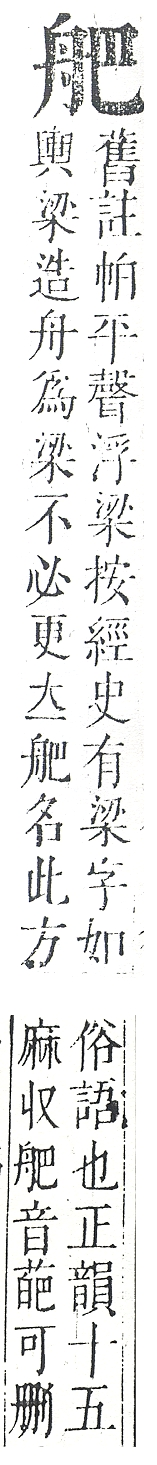 舥
舊註帕平聲浮梁按經史有梁字如
輿梁造舟為梁不必更立舥名此方
俗語也正韻十五
麻収舥音葩可删